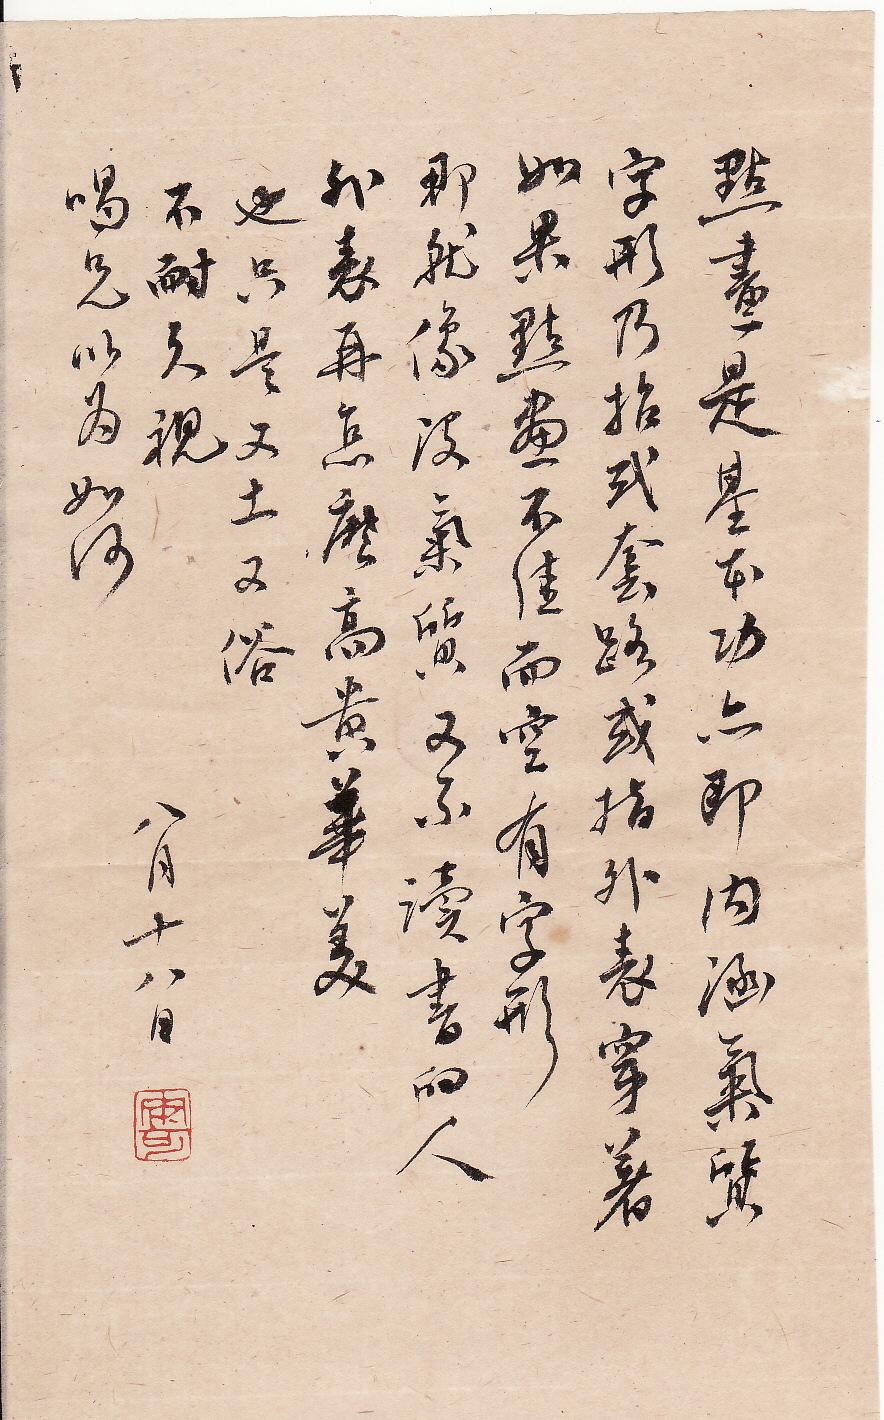 點畫是基本功亦即內涵氣質
字形乃招式套路或指外表穿著
如果點畫不佳而空有字形
那就像沒氣質又不讀書的人
外表再怎麼高貴華美
也只是又土又俗
不耐久視
喝兄以為如何
八月十八日